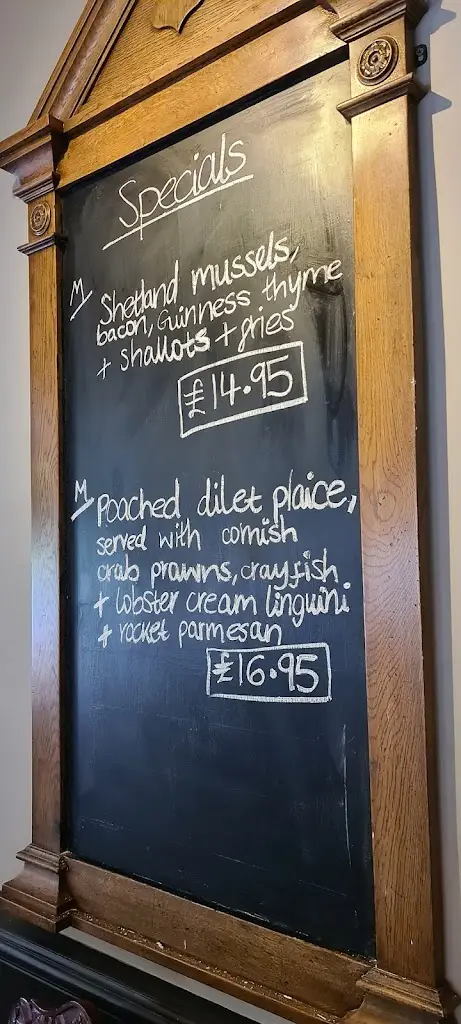 Specials
M Shetland mussels,
bacon, Guinness thyme
+ Shallots + fries
£14.95
M Poached dilet plaice,
served with cornish
crab prawns, crayfish
+ lobster cream linguini
+ rocket parmesan
£16.95